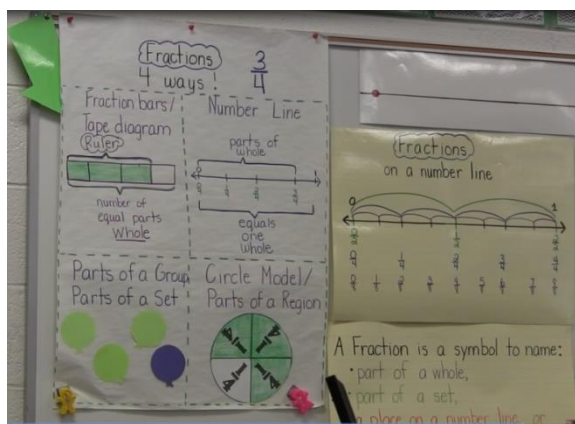 Fractions
4 ways!
3/4
Fraction bars/
Tape diagram
Ruler
number of
equal parts
Whole
Number Line
parts of
whole
equals
one
whole
Parts of a Group
Parts of a Set
Circle Model/
Parts of a Region
1/4 1/4
1/4 1/4
Fractions
on a number line
0 1
A Fraction is a symbol to name:
• part of a whole,
• part of a set,
a place on a number line, or